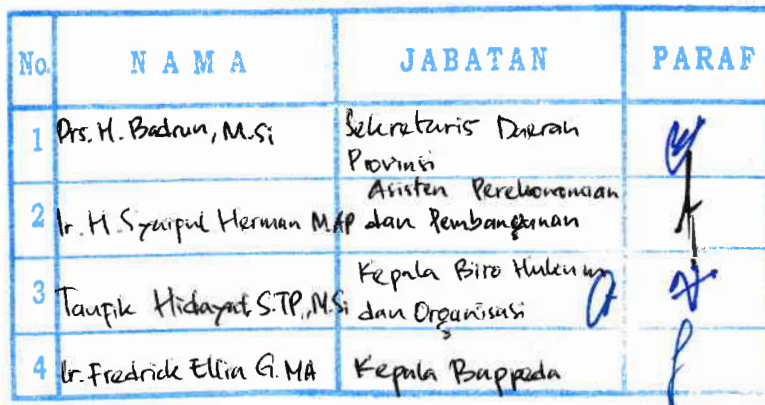 No. N A M A JABATAN PARAF
1 Drs. H. Badrun, M.Si Sekretaris Daerah
Provinsi
2 Ir. H. Syaipul Herman MAP Asisten Perekonomian
dan Pembangunan
3 Taufik Hidayat S.TP, M.Si Kepala Biro Hukum
dan Organisasi
4 Ir. Fredrick Ellia G. MA Kepala Bappeda